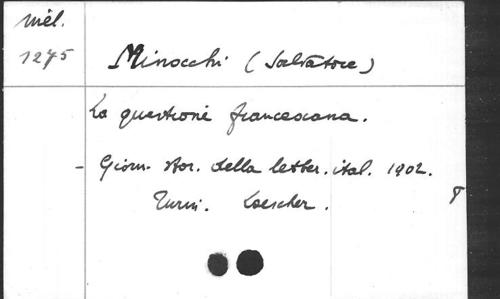 Mél.
1275
Minocchi (Salvatore)
La questione francescana.
- Giorn. stor. della letter. ital. 1902.
Turin. Loescher.
8